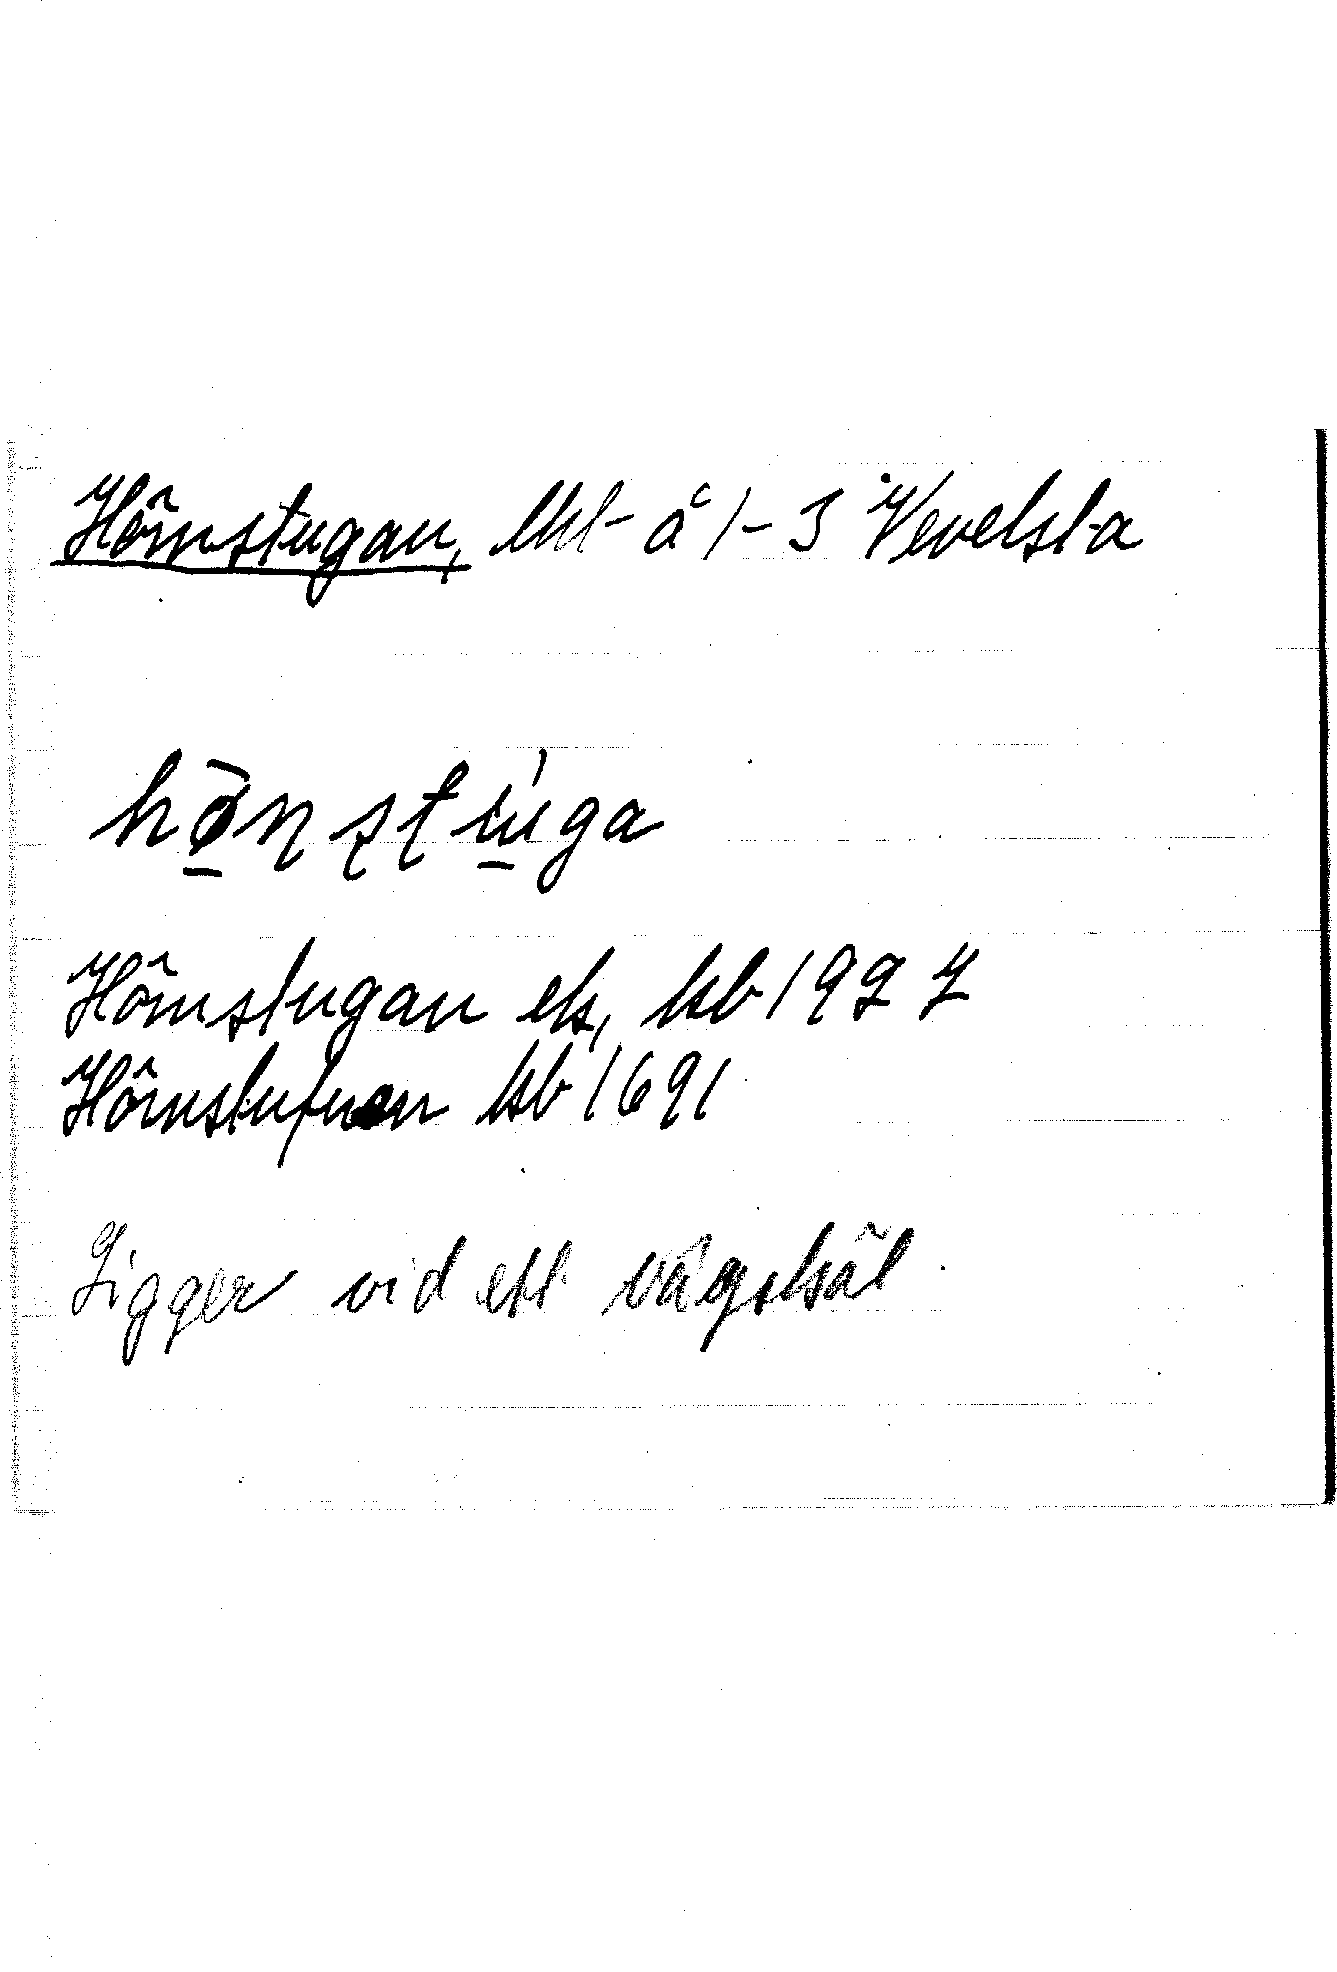 Hörnstugan, lht å 1-3 Vevelsta
hö̱n̥stu̱ga
Hörnstugan ek, kb 1927
Hörnstufuen kb 1691
Ligger vid ett vägskäl